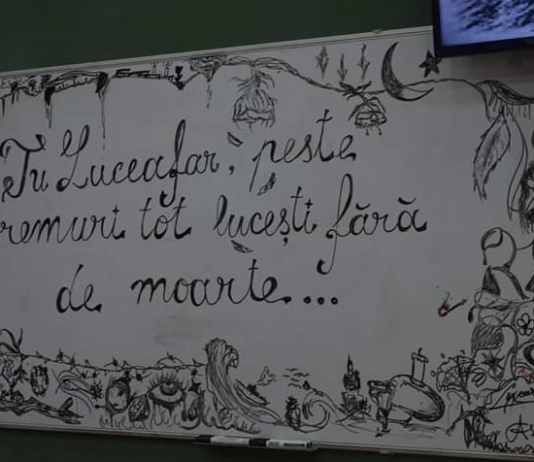 Tu Luceafar, peste
remuri tot lucești fără
de moarte...